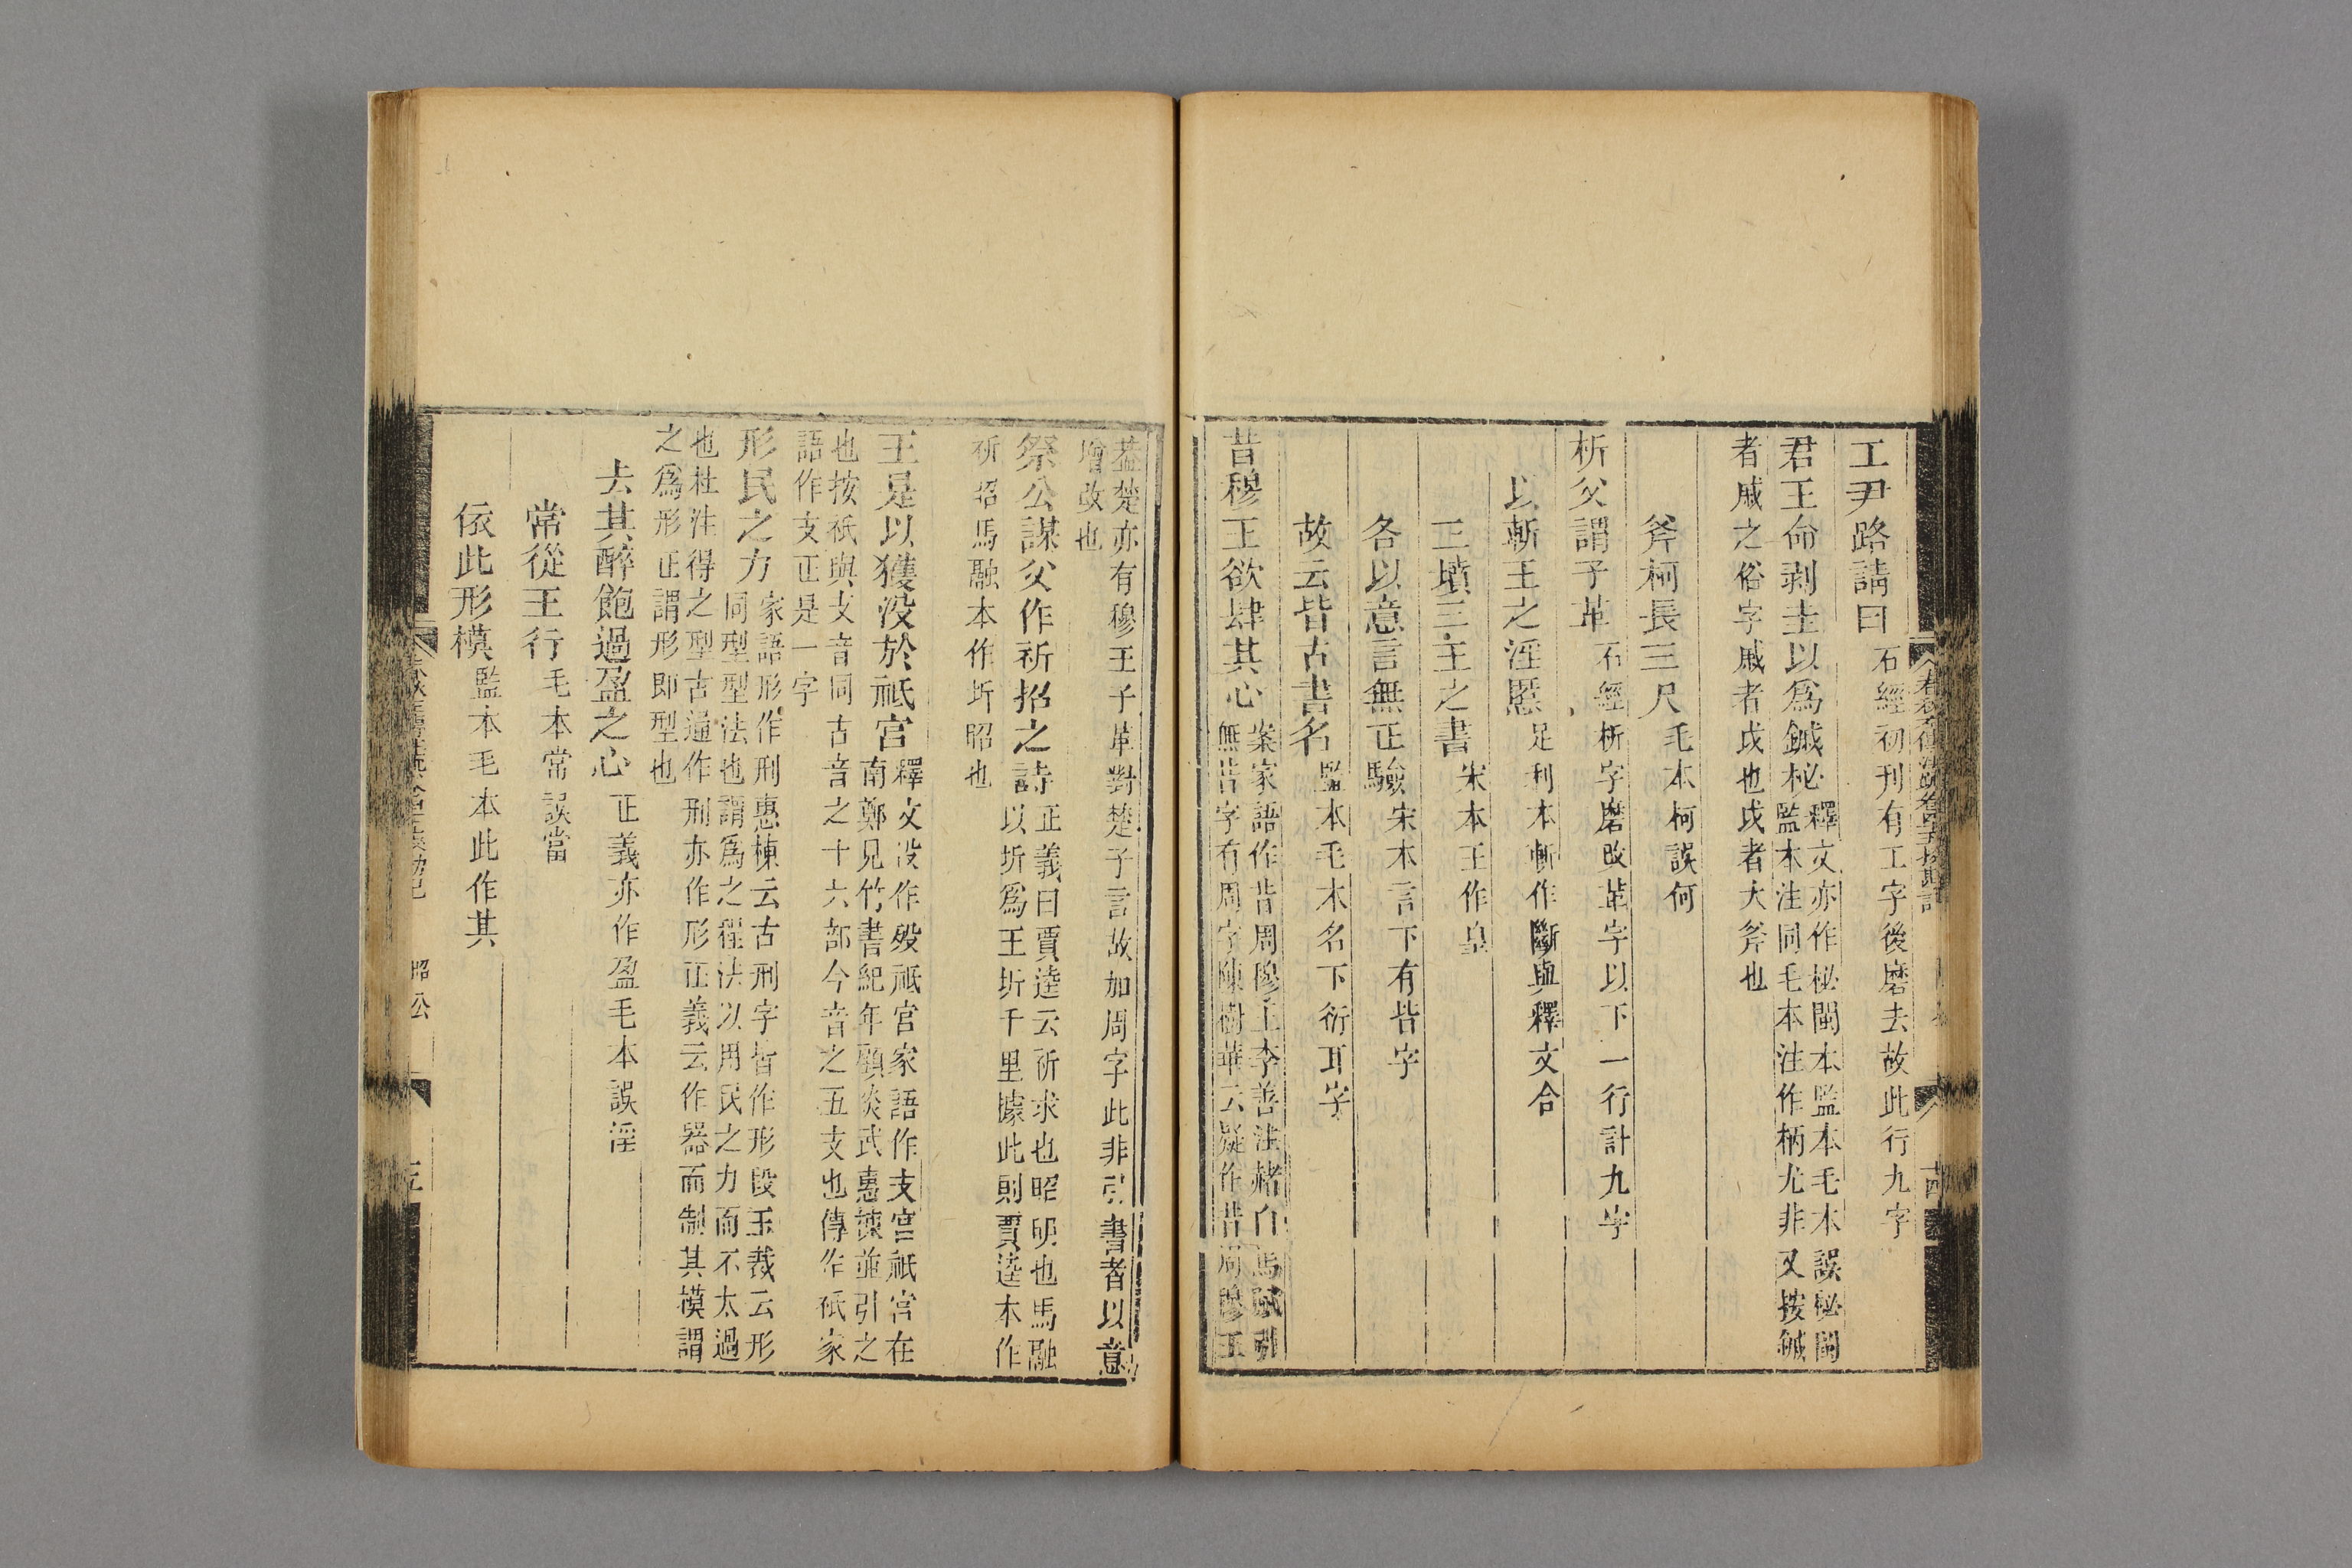 工尹路請曰石經初刊有工字後磨去故此行九字
君王命剥圭以爲鏚柲釋文亦作柲閩本監本毛本誤秘閩
監本注同毛本注作柄尤非又按鏚
者戚之俗字戚者戉也戉者大斧也
斧柯長三尺毛本柯誤何
析父謂子革石經析字磨改革字以下一行計九字
以斬王之淫慝足利本斬作斷與釋文合
三墳三王之書宋本王作皇
各以意言無正驗宋本言下有皆字
故云皆古書名監本毛本名下衍耳字
昔穆王欲肆其心案家語作昔周穆王李善注赭白馬賦引
無昔字有周字陳樹華云疑作昔周穆王
葢楚亦有穆王子革對楚子言故加周字此非引書者以意
增改也
祭公謀父作祈招之詩正義曰賈逵云祈求也昭明也馬融
以圻爲王圻千里據此則賈逵本作
祈招馬融本作圻昭也
王是以獲没於祗宫釋文没作殁祗宫家語作支宫祇宫在
南鄭見竹書紀年顧炎武惠棟並引之
也按祇與支音同古音之十六部今音之五支也傳作祇家
語作支正是一字
形民之力家語形作刑惠棟云古刑字皆作形段玉裁云形
同型型法也謂爲之程法以用民之力而不太過
也杜注得之型古通作刑亦作形正義云作器而制其模謂
之爲形正謂形即型也
去其醉飽過盈之心正義亦作盈毛本誤淫
常從王行毛本常誤當
依此形模監本毛本此作其
昭公